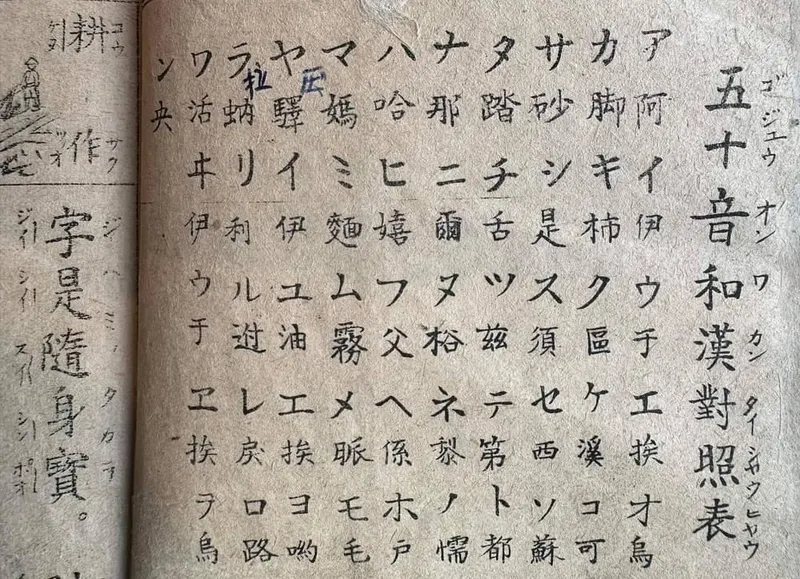 五十音和漢對照表
ゴジユウオンワカンタイシャウヒャウ
ア阿イ伊ウ于エ挨オ烏
カ脚キ柿ク區ケ溪コ可
サ砂シ是ス須セ西ソ蘇
タ踏チ舌ツ茲テ第ト都
ナ那ニ爾ヌネ黎ノ懦
ハ哈ヒ嬉フ父ヘ係ホ戸
マ媽ミ麵ム霧メモ毛
压
ヤ驛イ伊ユ油エ挨ヨ喲
拉
ラ蚋リ利ルレ戻ロ路
ワ活ヰ伊ウ于ヱ挨ヲ烏
ン央
コウサク
耕作
ジハミノタカラ
字是隨身寶。